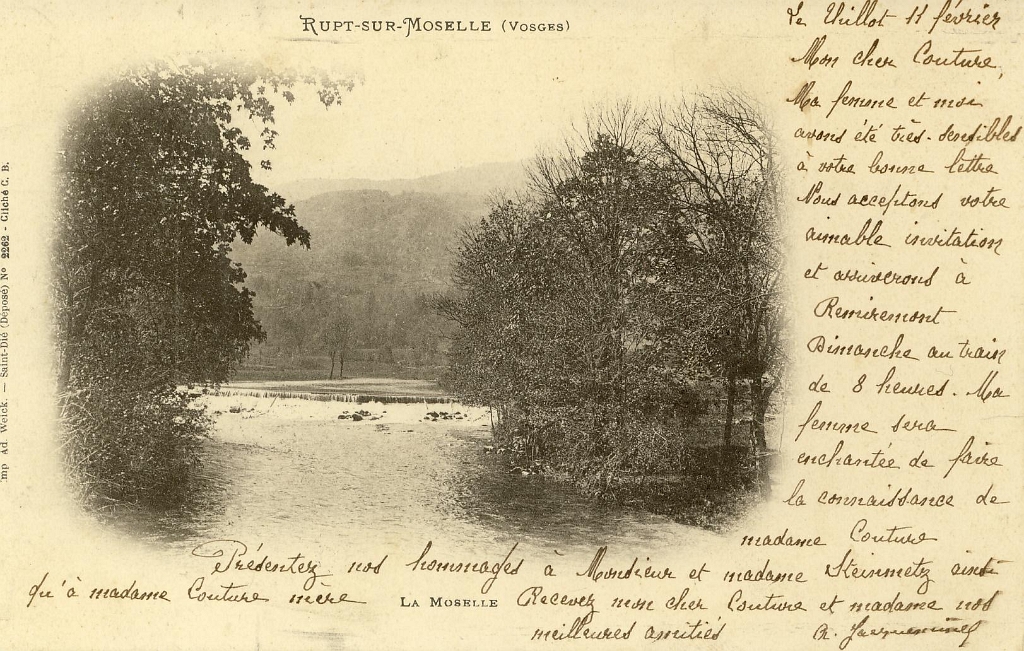 RUPT-SUR-MOSELLE (VOSGES)
Le Thillot 11 février
Mon cher Couture,
Ma femme et moi
avons été très-sensibles
à votre bonne lettre
Nous acceptons votre
aimable invitation
et arriverons à
Remiremont
Dimanche au train
de 8 heures. Ma
femme sera
enchantée de faire
la connaissance de
madame Couture
Présentez nos hommages à Monsieur et madame Steinmetz ainsi
qu'à madame Couture mère
LA MOSELLE
Recevez mon cher Couture et madame nos
meilleures amitiés
Imp Ad. Weick. — Saint-Dié (Déposé) No 2262 - Cliché C. B.